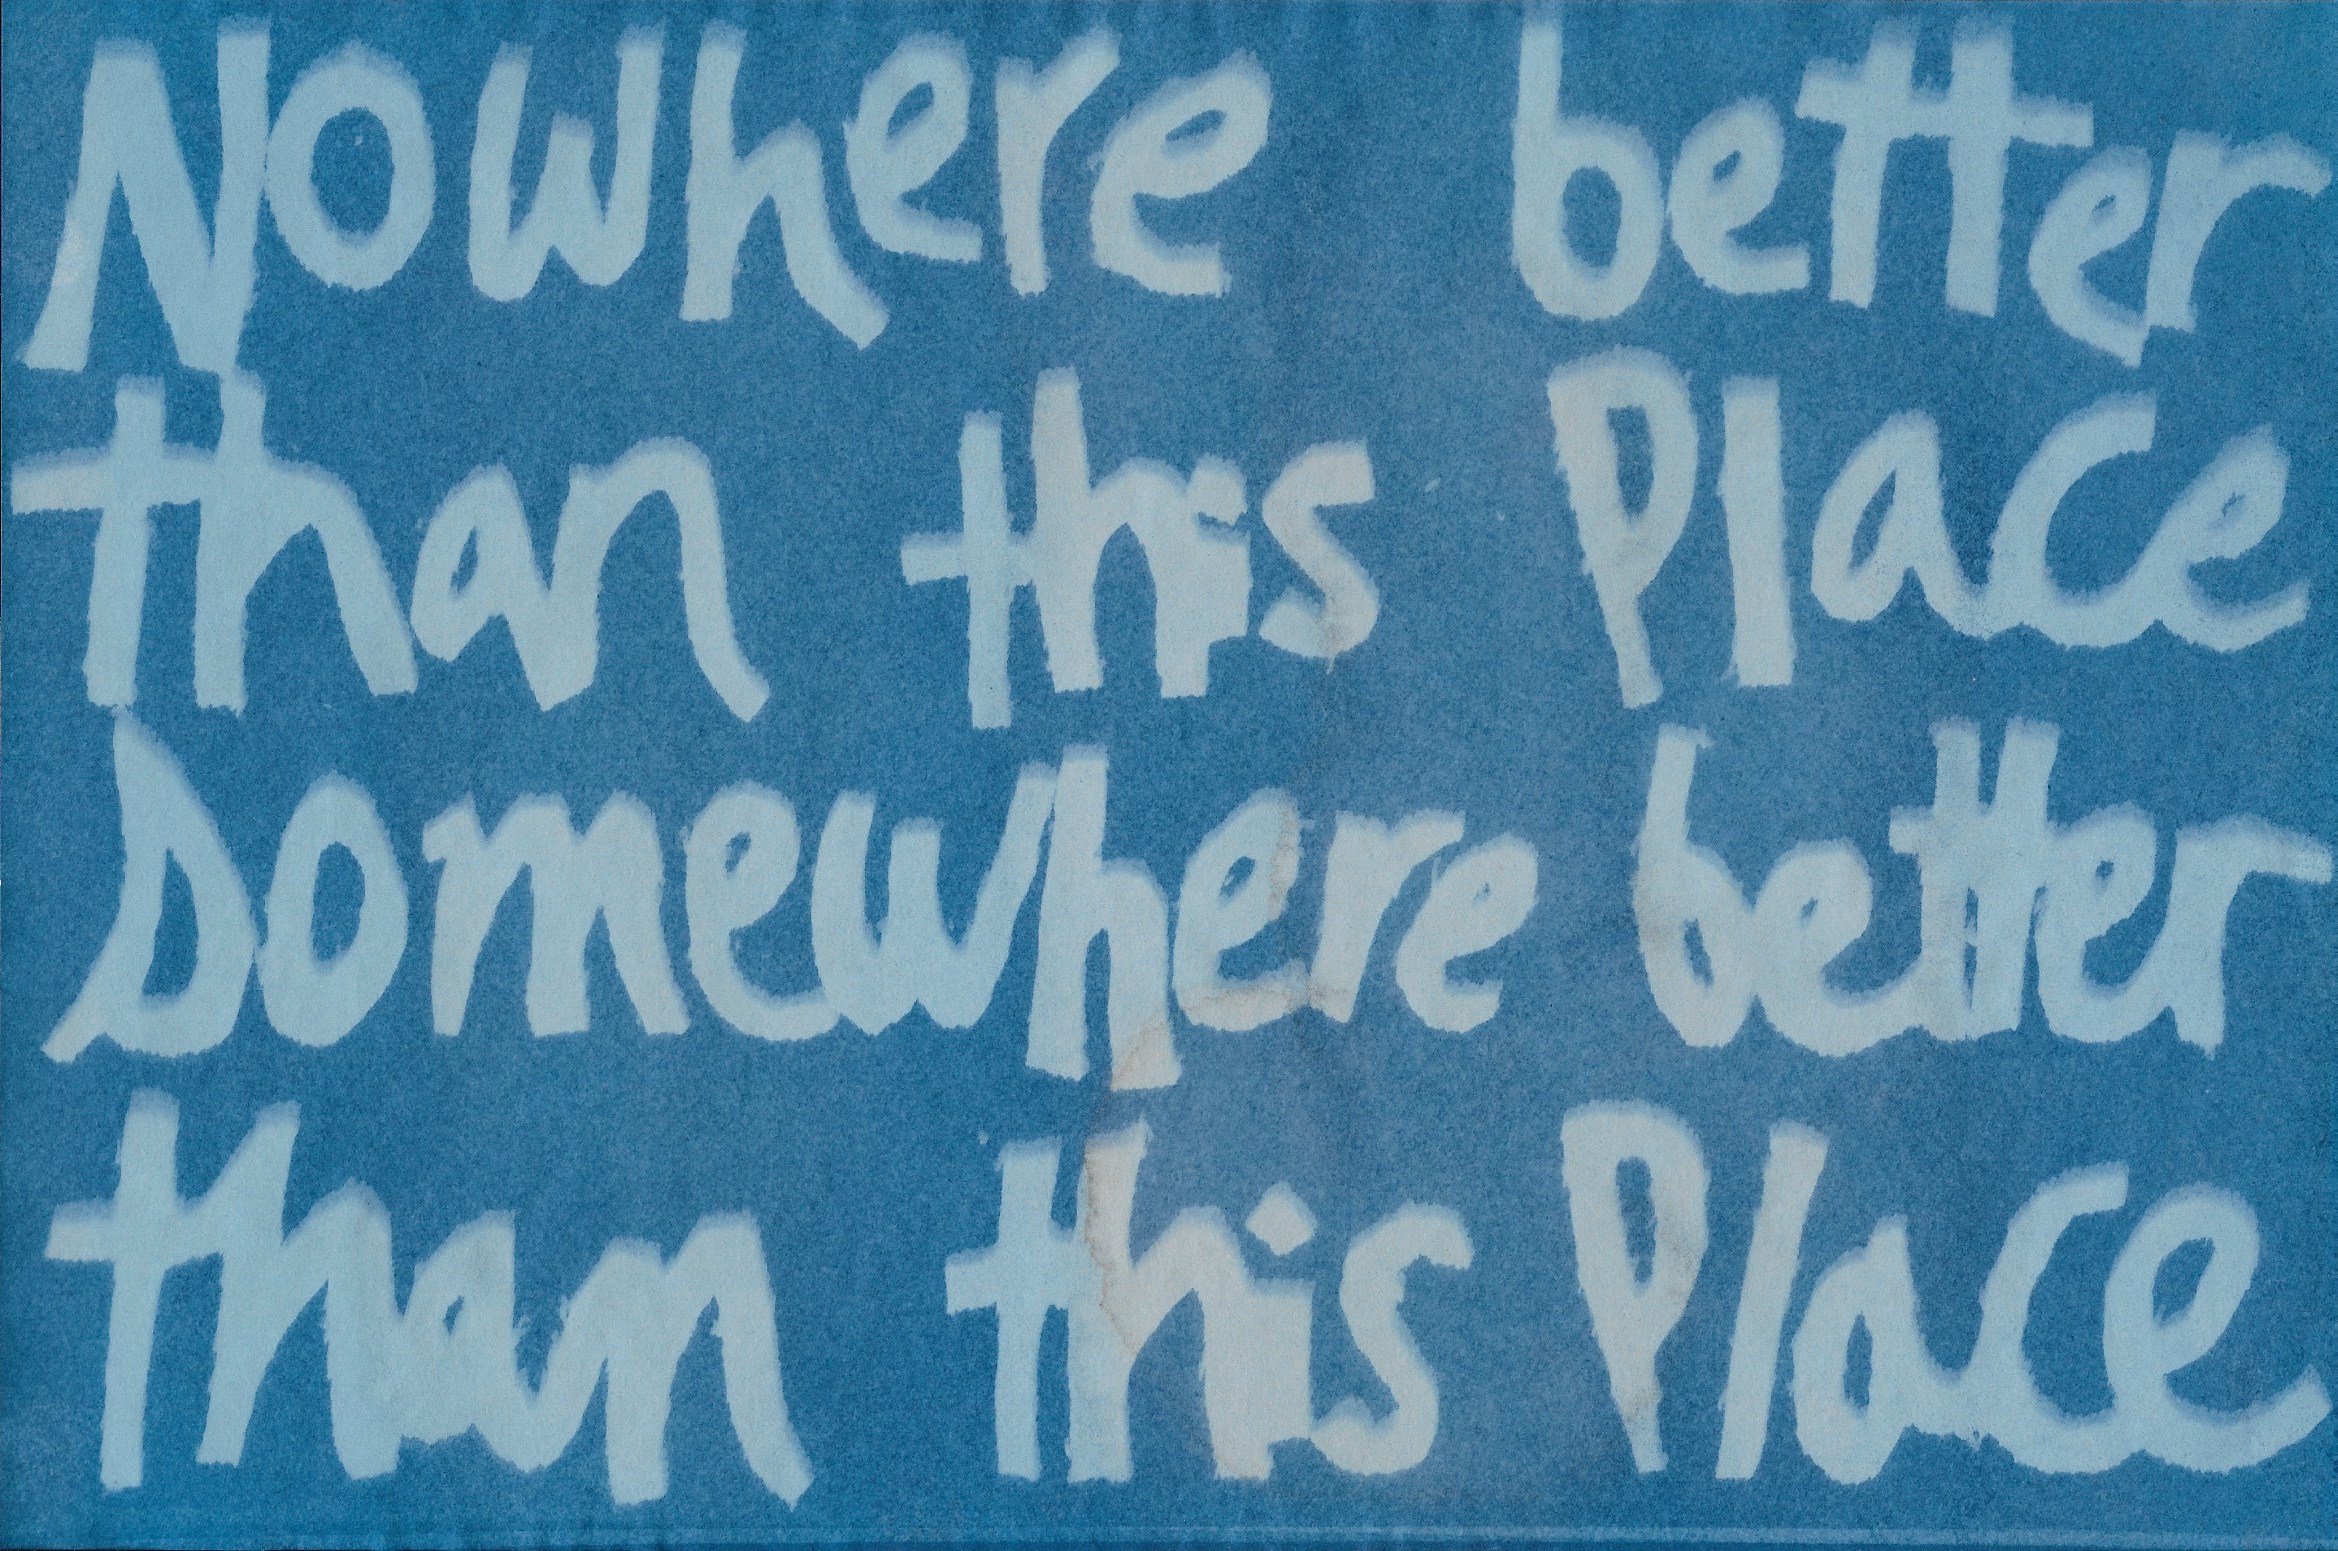 Nowhere better
than this Place
Somewhere better
than this Place